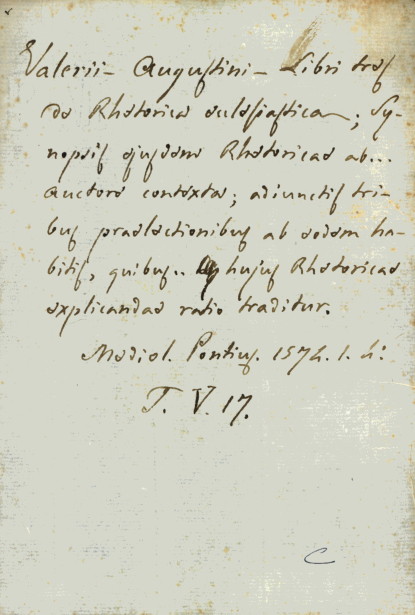 Valerii - Augustini - Libri tres
de Rhetorica ecclesiastica; Sy-
nopsis ejusdem Rhetoricae ab...
auctore contexta; adiunctis tri-
bus praelectionibus ab eodem ha-
bitis, quibus.. hujus Rhetoricae
explicandae ratio traditur.
Mediol. Pontius. 1574. 1. 4:
T. V. 17.
C